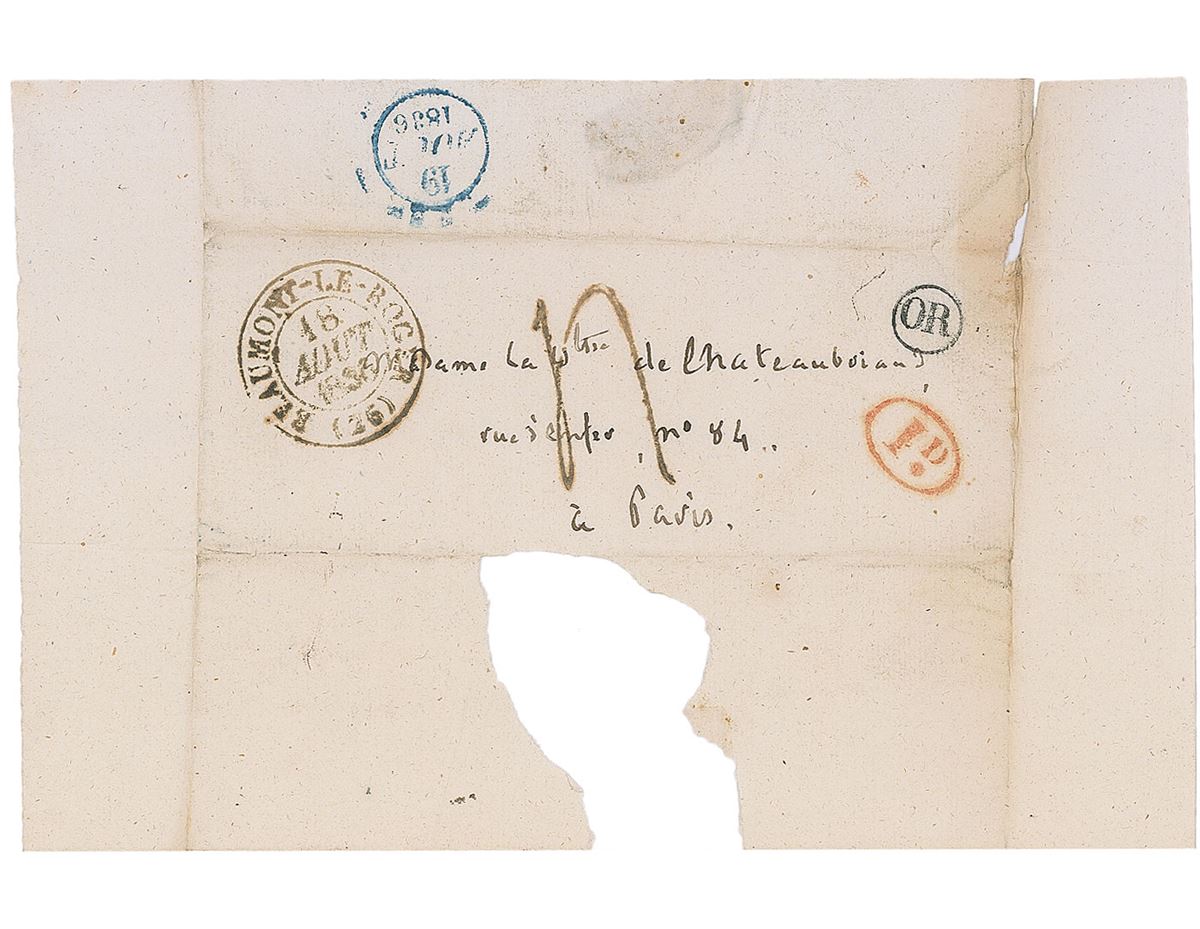 1836
AOUT
19
BEAUMONT-LE-ROGER (26)
18
AOUT
1836
OR
Madame la Vtsse de Chateaubriand,
rue d'enfer, no 84.
à Paris.
1D